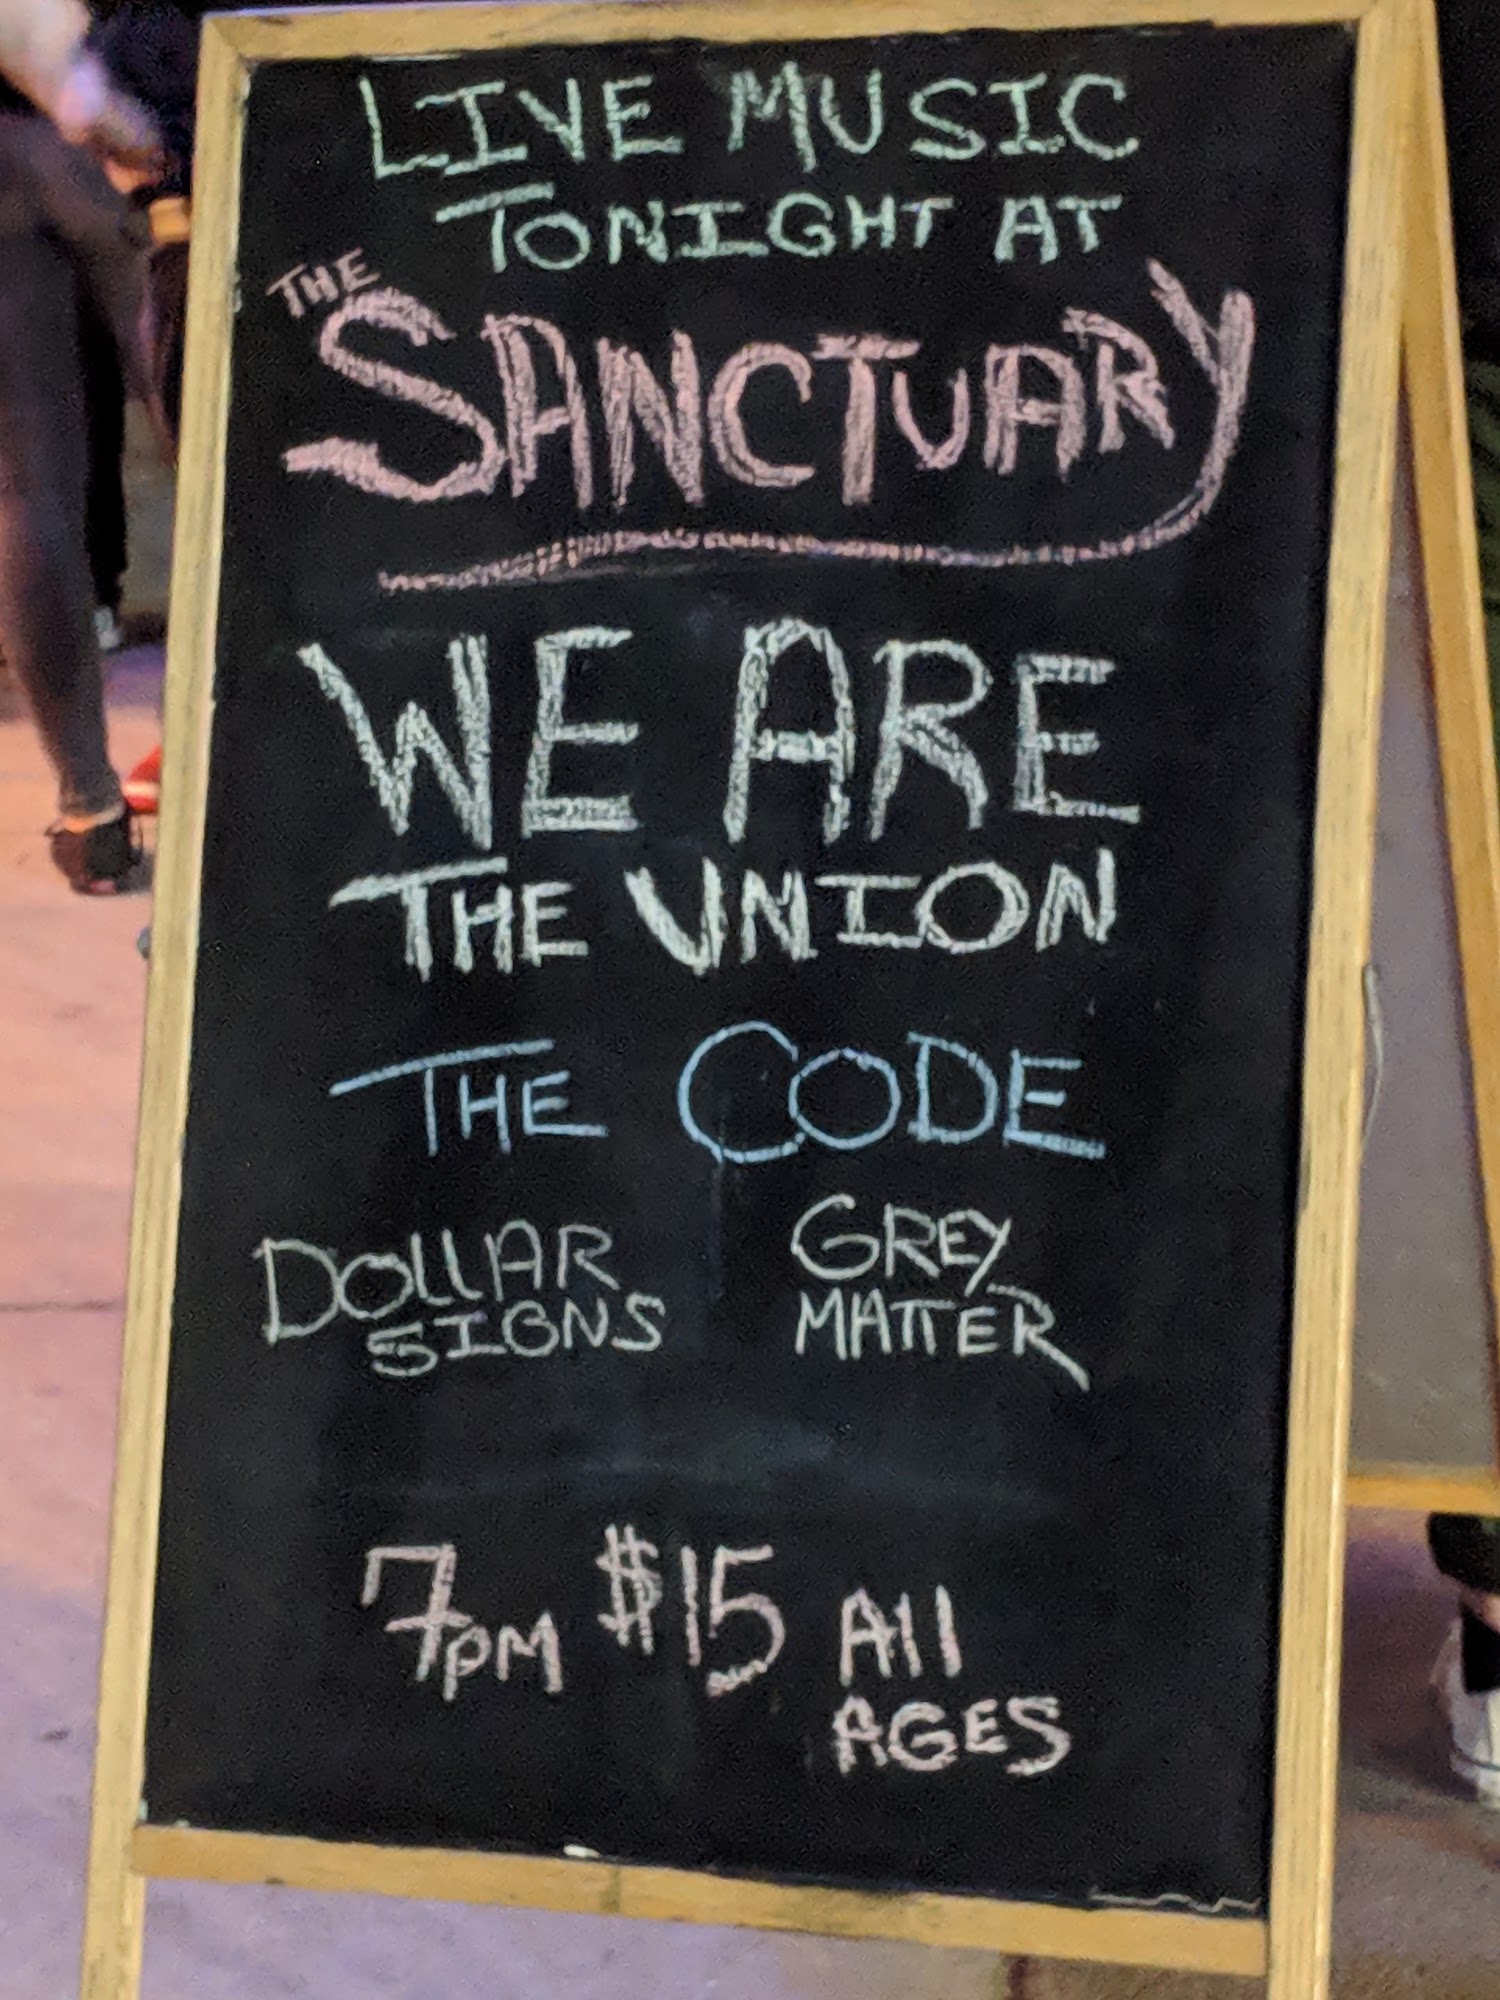 LIVE MUSIC
TONIGHT AT
THE
SANCTUARY
WE ARE
THE UNION
THE CODE
DOllAR
SIGNS
GREY
MATTER
7PM $15 All
AGES